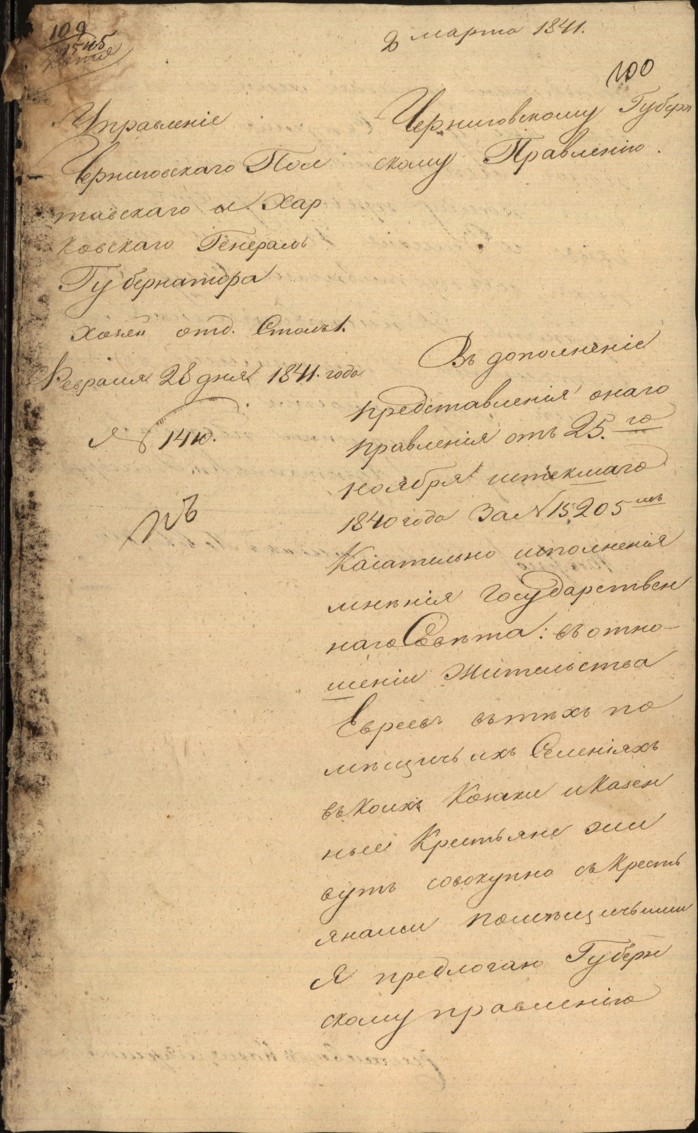 109
8 марта 1841.
100
Управленіе
Черниговскаго Пол
тавскаго и Хар
ковскаго Генералъ
Губернатора
Хозяй отд. Столъ 1.
Февраля 28 дня 1841. года
№ 1410.
Черниговскому Губерн
скому Правленію.
Въ дополненіе
представленія онаго
правленія отъ 25.го
ноября истекшаго
1840 года За N 15205мъ
Касательно исполненія
мнѣнія Государствен
наго Совѣта: въ отно-
шеніи жительства
Евреевъ въ тѣхъ по
мѣщичьихъ Селеніяхъ
въ Коихъ Козаки и Казен
ные Крестьяне жи
вутъ совокупно съ Кресть
янами помѣщичьими
Я предлогаю Губерн
скому правленію